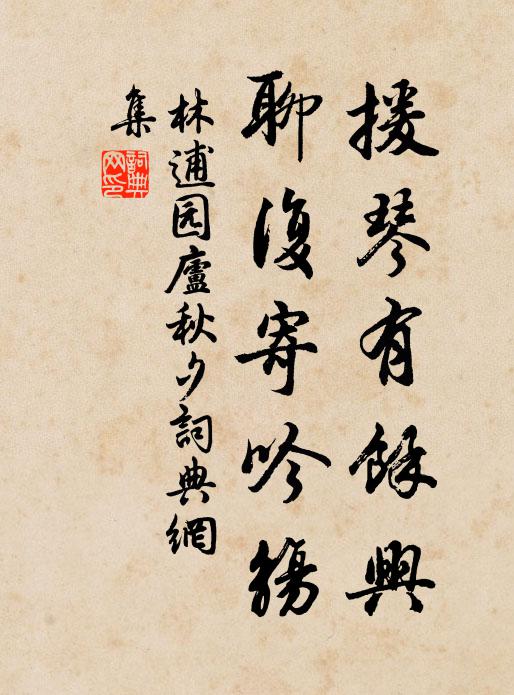 援琴有餘興
聊復寄吟觴
林逋园廬秋夕詞典網
集
詞典網印